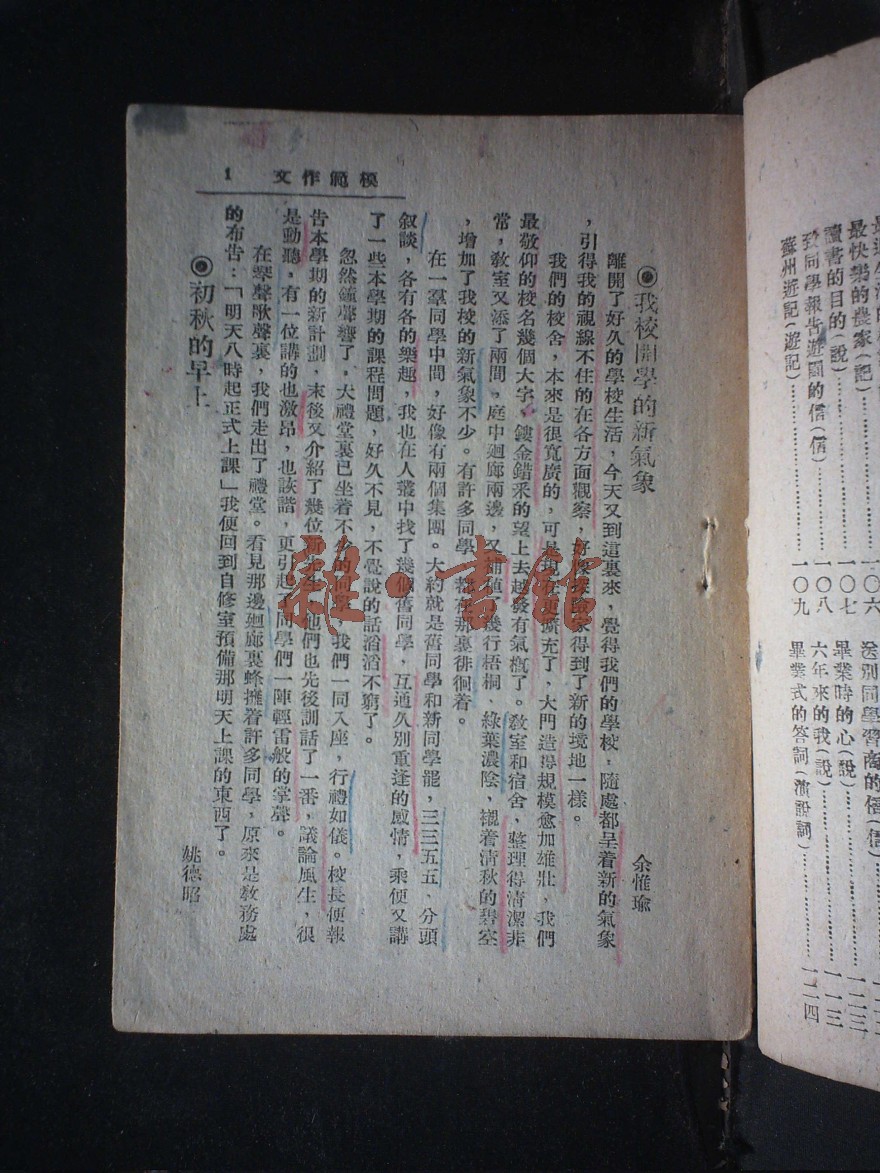 最快樂的農家(記)……一〇六
讀書的目的(說)……一〇七
致同學報告遊園的信(信)……一〇八
蘇州遊記(遊記)……一〇九
送別同學習商的信(信)
畢業時的心(說)……一一三
六年來的我(說)……一一三
畢業式的答詞(演說詞)……一一四
模範作文 1
◉我校開學的新氣象 余惟瑜
離開了好久的學校生活,今天又到這裏來,覺得我們的學校,隨處都呈着新的氣象
,引得我的視線不住的在各方面觀察,好像探險家得到了新的境地一樣。
我們的校舍,本來是很寬廣的,可是現在更擴充了,大門造得規模愈加雄壯,我們
最敬仰的校名幾個大字,鏤金錯釆的望上去越發有氣概了。敎室和宿舍,整理得清潔非
常,敎室又添了兩間。庭中廻廊兩邊,又補植了幾行梧桐、綠葉濃陰,襯着清秋的碧空
,增加了我校的新氣象不少。有許多同學,都在那裏徘徊着。
在一羣同學中間,好像有兩個集團。大約就是舊同學和新同學罷,三三五五、分頭
叙談,各有各的樂趣,我也在人叢中找了幾個舊同學,互道久別重逢的感情,乘便又講
了一些本學期的課程問題,好久不見,不覺說的話滔滔不窮了。
忽然鐘聲響了。大禮堂裏已坐着不少的同學,我們一同入座,行禮如儀。校長便報
告本學期的新計劃,末後又介紹了幾位新先生,他們也先後訓話了一番,議論風生,很
是動聽,有一位講的也激昂,也詼諧,更引起了同學們一陣輕雷般的掌聲。
在琴聲歌聲裏,我們走出了禮堂。看見那邊廻廊裏蜂擁着許多同學,原來是敎務處
的布告:「明天八時起正式上課」我便回到自修室預備那明天上課的東西了。
◉初秋的早上 姚德昭
雜·書館